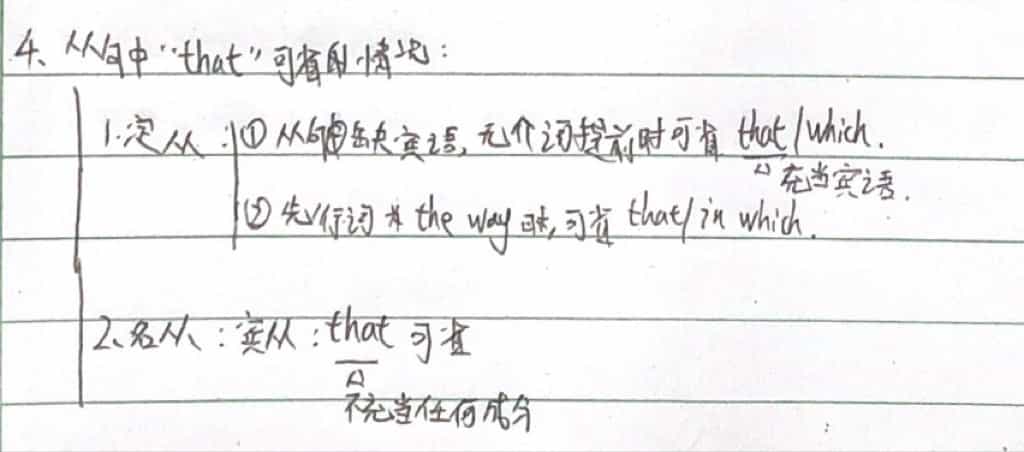 4、从句中“that”可省的情况：
1.定从：①从句中缺宾语,无介词提前时可省 that/which.
充当宾语.
②先行词为 the way 时,可省 that/in which.
2、名从：宾从：that 可省
不充当任何成分